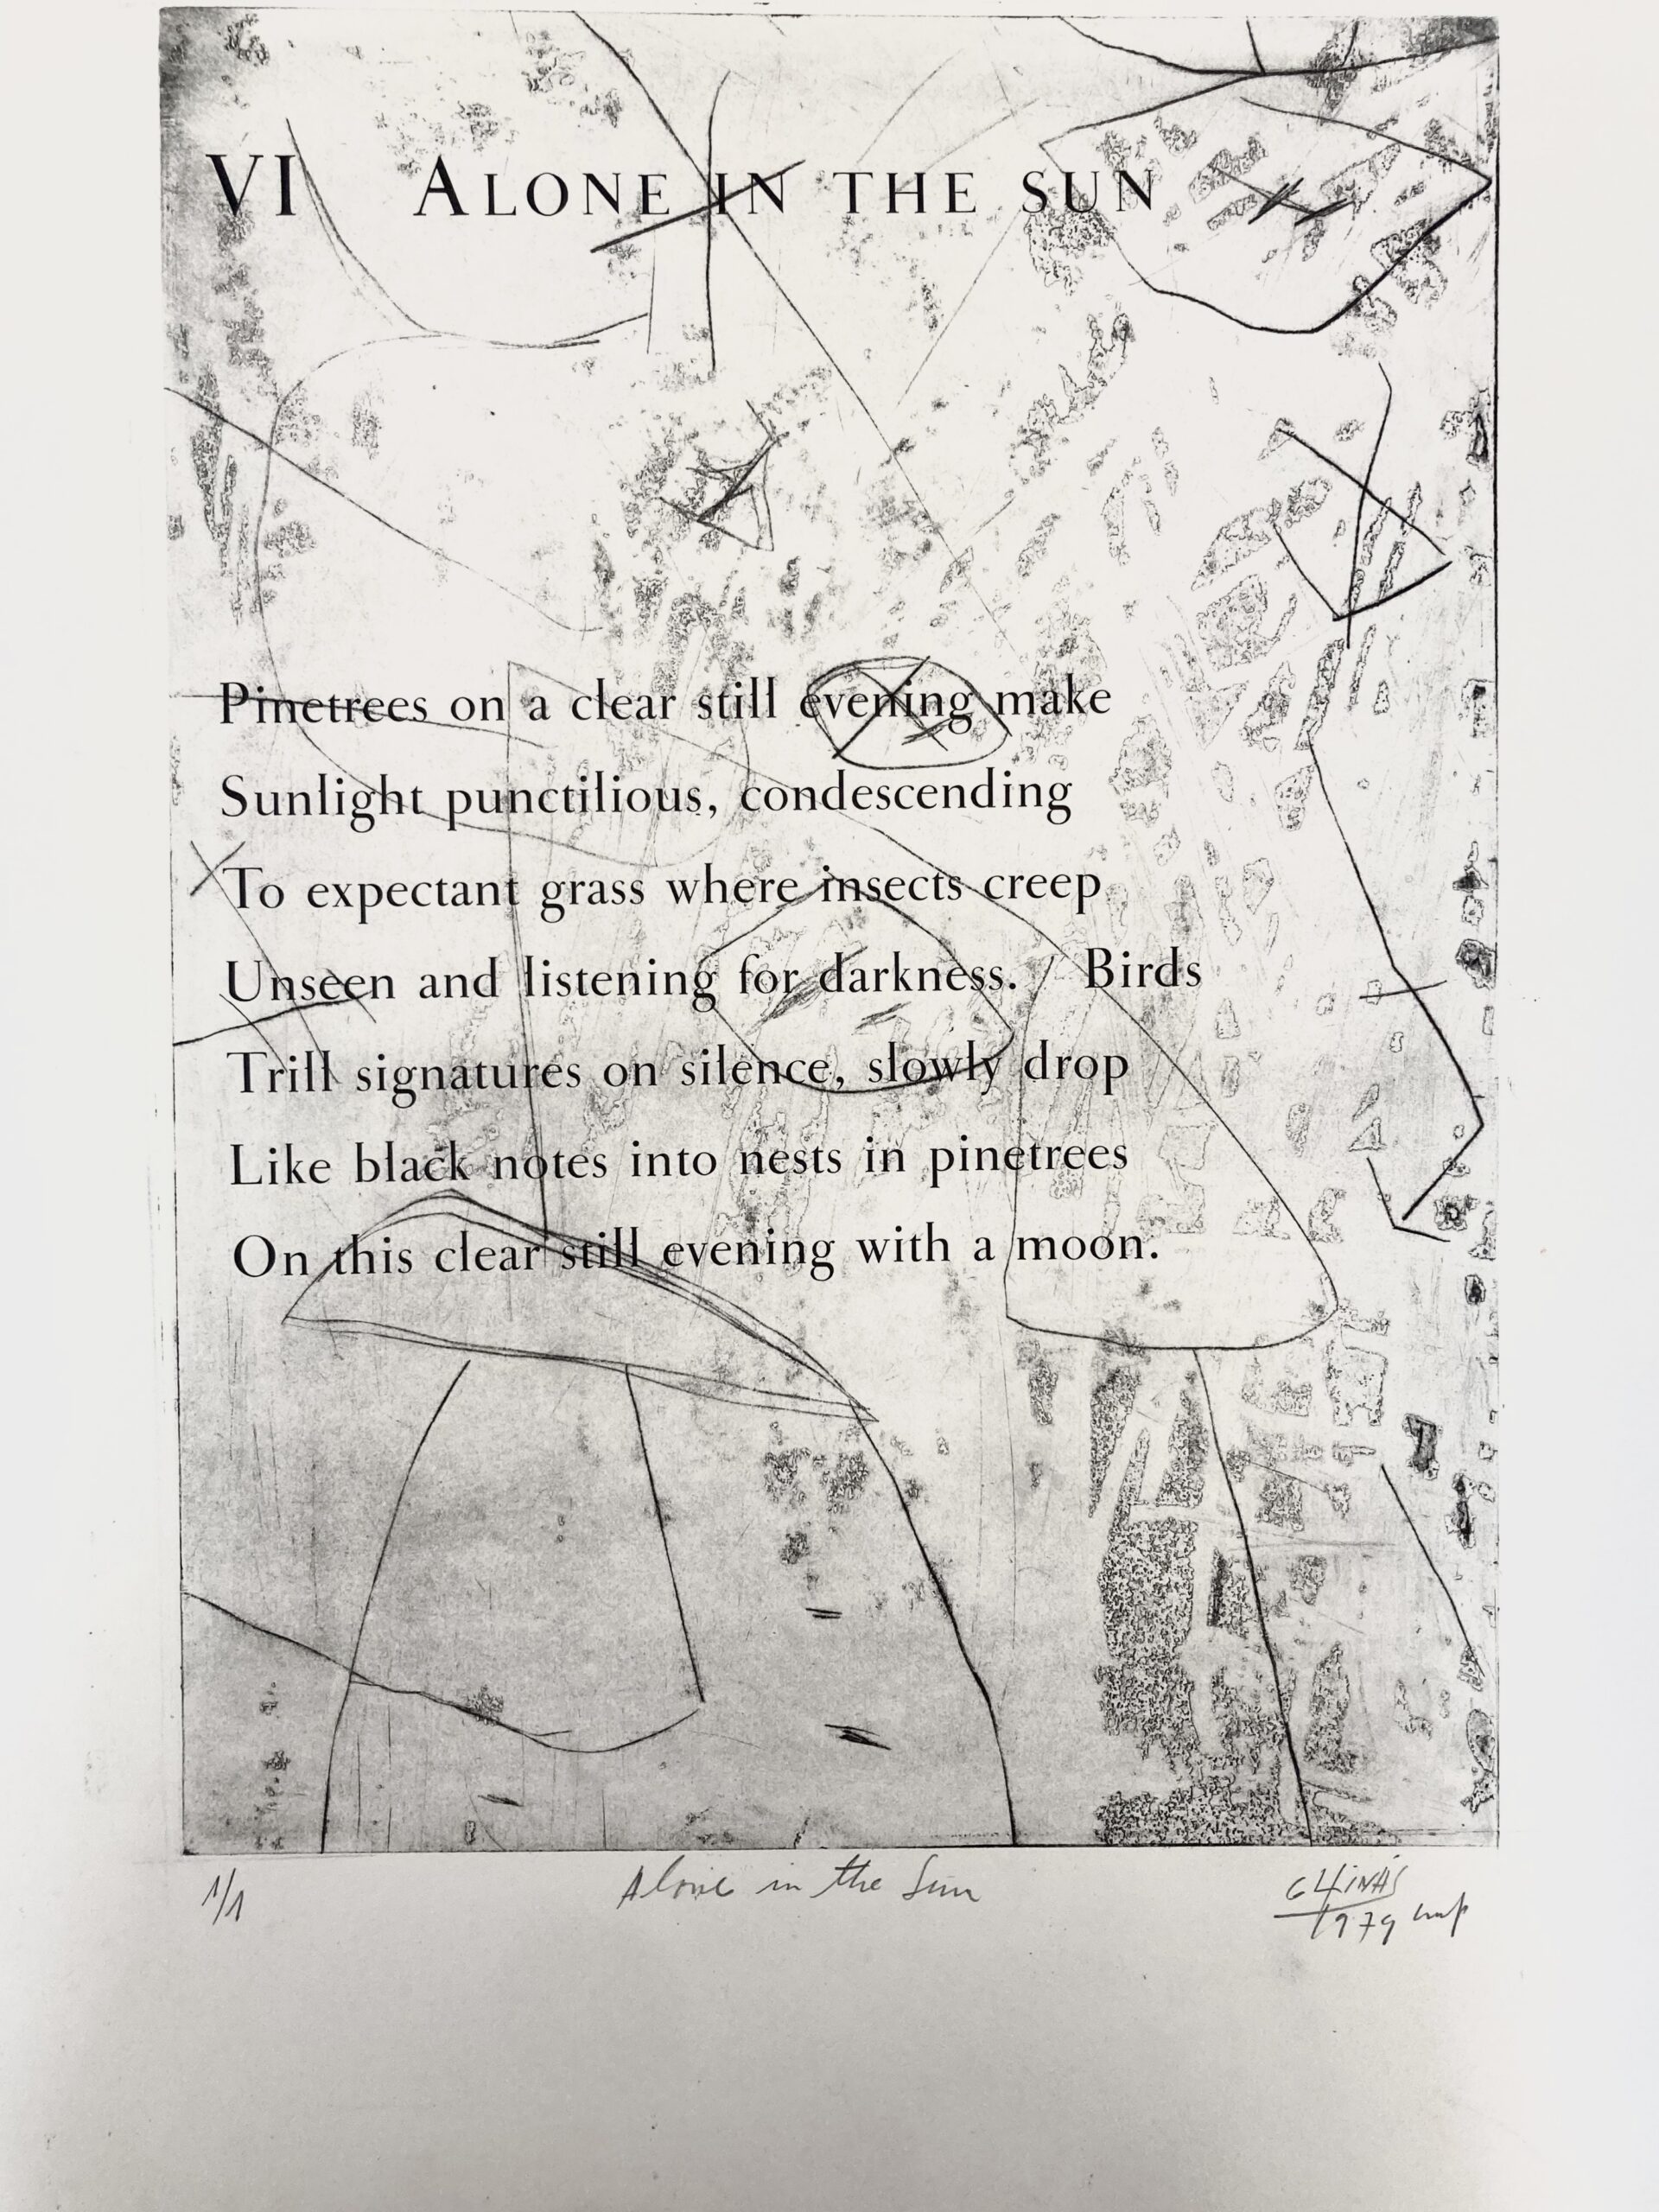 VI ALONE IN THE SUN
Pinetrees on a clear still evening make
Sunlight punctilious, condescending
To expectant grass where insects creep
Unseen and listening for darkness. Birds
Trill signatures on silence, slowly drop
Like black notes into nests in pinetrees
On this clear still evening with a moon.
1/1 Alone in the Sun
1979